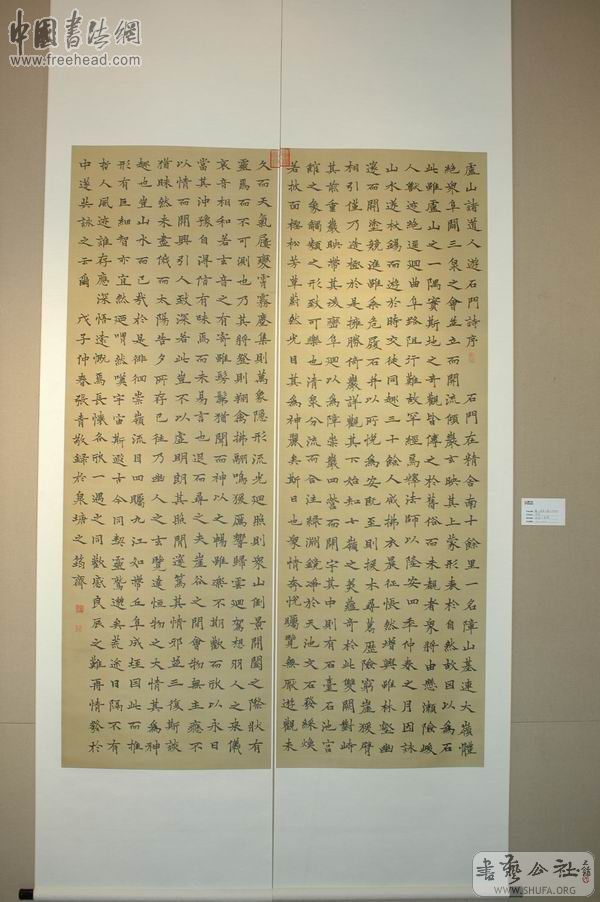 中國書法網
www.freehead.com
廬山諸道人遊石門詩序 石門在精舍南十餘里一名障山基連大嶺體
絕衆阜闢三泉之會並立而開流傾巖玄映其上蒙形表於自然故因以爲石
此雖廬山之一隅實斯地之奇觀皆傳之於舊俗而未覩者衆將由懸瀨險峻
人獸迹絕逕迴曲阜路阻行難故罕經焉釋法師以隆安四季仲春之月因詠
山水遂杖錫而遊於時交徒同趣三十餘人咸拂衣晨征悵然增興雖林壑幽
邃而開塗競進雖乘危履石并以所悅爲安既至則援木尋葛歷險窮崖猨臂
相引僅乃造極於是擁勝倚巖詳觀其下始知七嶺之美蘊奇於此雙闕對峙
其前重巖映帶其後巒阜周迴以爲障崇巖四營而開宇其中則有石臺石池宮
館之象觸類之形致可樂也清泉分流而合注綠淵鏡淨於天池文石發綵煥
若披面檉松芳草蔚然光目其爲神麗矣斯日也衆情奔悅矚覽無厭遊觀未
久而天氣屢變霄霧塵集則萬象隱形流光迴照則衆山倒景開闔之際狀有
靈焉而不可測也乃其將登則翔禽拂翮鳴猨厲響歸雲迴駕想羽人之來儀
哀音相和若玄音之有寄雖髣髴猶聞而神以之暢雖樂不期歡而欣以永日
當其沖豫自得信有味焉而未易言也退而尋之夫崖谷之間會物無主應不
以情而開興引人致深若此豈不以虛明朗其照閒邃篤其情邪並三復斯談
猶昧然未盡俄而太陽告夕所存已往乃悟幽人之玄覽達恒物之大情其爲神
趣也豈山水而已哉於是徘徊崇嶺流目四矚九江如帶丘阜成垤因此而推
形有巨細智亦宜然迺喟然嘆宇宙雖遐古今一契靈鷲邈矣荒途日隔不有
哲人風迹誰存應深悟遠慨焉長懷各欣一遇之同歡感良辰之難再情發於
中遂共詠之云爾 戊子仲春張青敬録於泉塘之筠齋
書藝公社
WWW.SHUFA.ORG